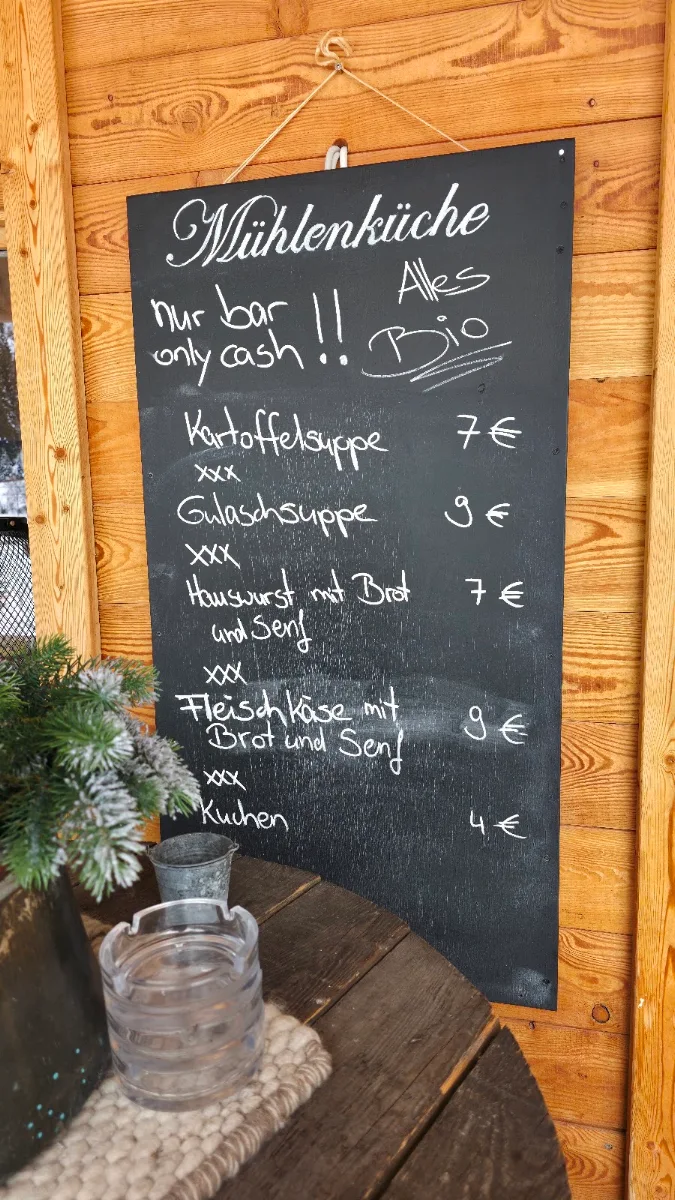 Mühlenküche
nur bar
only cash !!
Alles
Bio
Kartoffelsuppe 7 €
xxx
Gulaschsuppe 9 €
xxx
Hauswurst mit Brot 7 €
und Senf
xxx
Fleischkäse mit
Brot und Senf 9 €
xxx
Kuchen 4 €